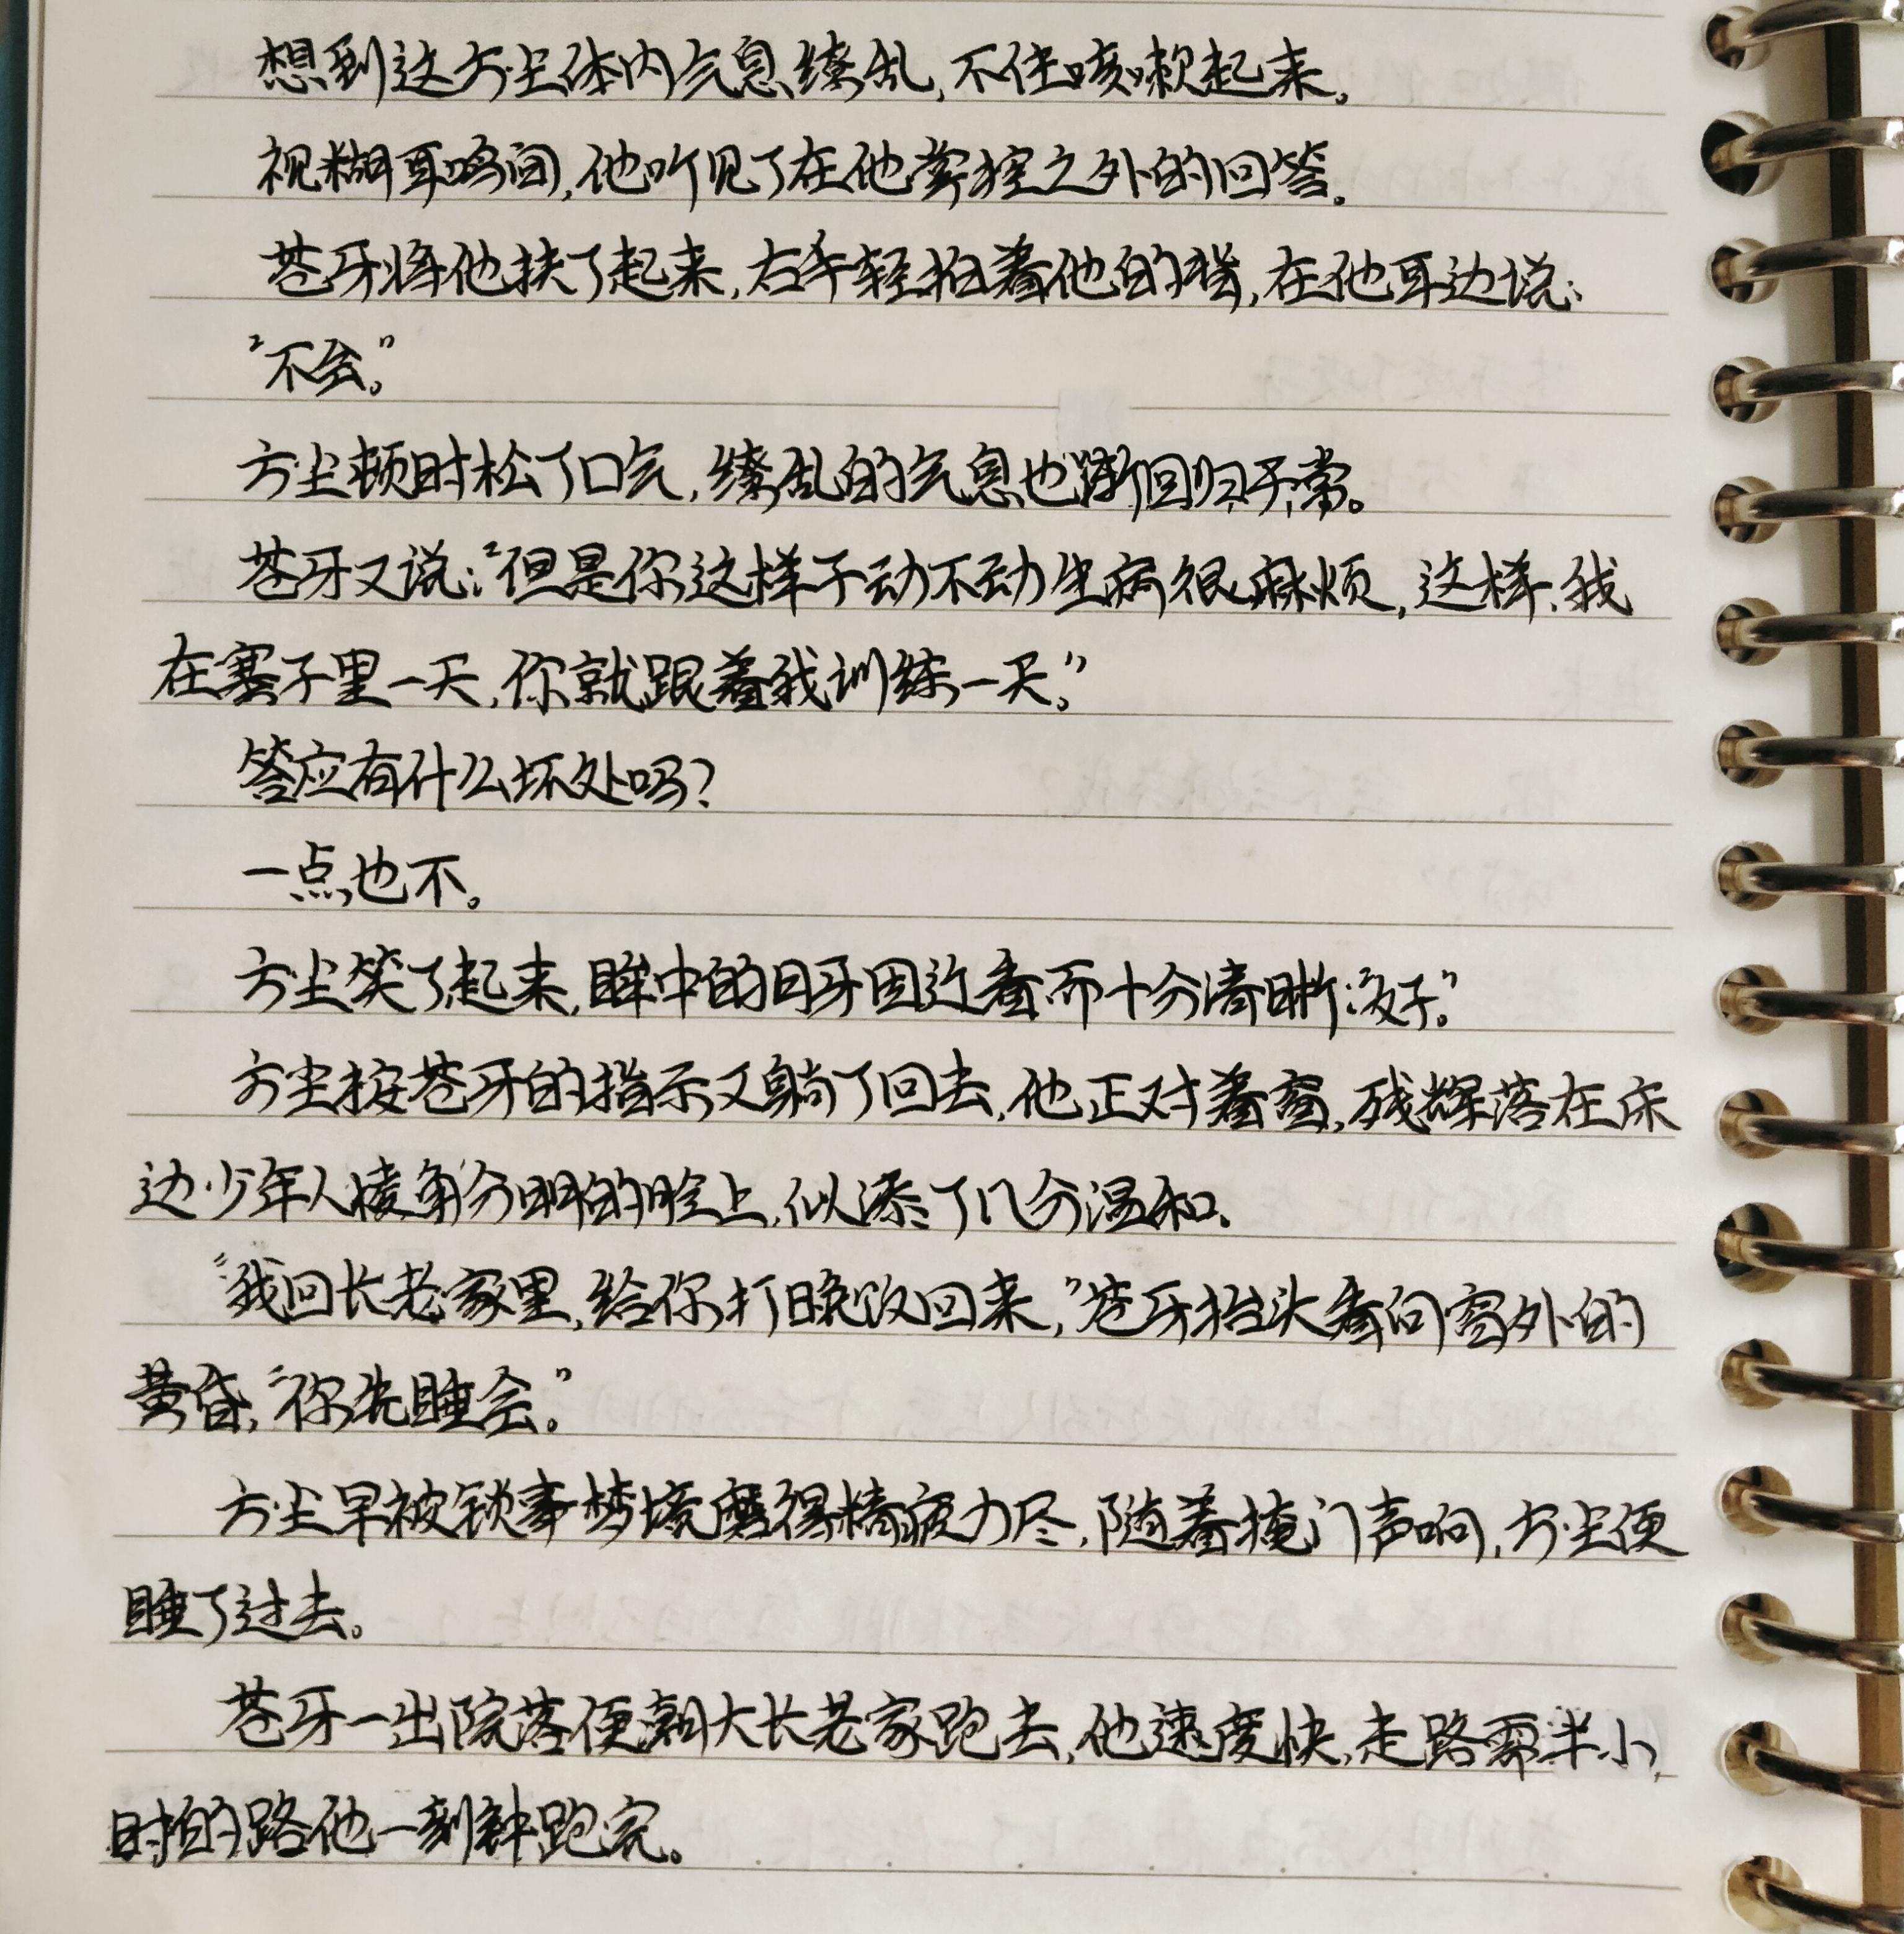 想到这方尘体内气息缭乱,不住咳嗽起来。
视糊耳鸣间,他听见了在他掌控之外的回答。
苍牙将他扶了起来,右手轻拍着他的背,在他耳边说:
“不会。”
方尘顿时松了口气,缭乱的气息也渐回归于常。
苍牙又说:“但是你这样子动不动生病很麻烦,这样,我
在寨子里一天,你就跟着我训练一天。”
答应有什么坏处吗?
一点也不。
方尘笑了起来,眸中的月牙因近看而十分清晰:“好。”
方尘按苍牙的指示又躺了回去,他正对着窗,残辉落在床
边少年人棱角分明的脸上,似添了几分温和。
“我回长老家里,给你打晚饭回来,”苍牙抬头看向窗外的
黄昏,“你先睡会。”
方尘早被锁事梦境磨得精疲力尽,随着掩门声响,方尘便
睡了过去。
苍牙一出院落便朝大长老家跑去,他速度快,走路需半小
时的路他一刻钟跑完。